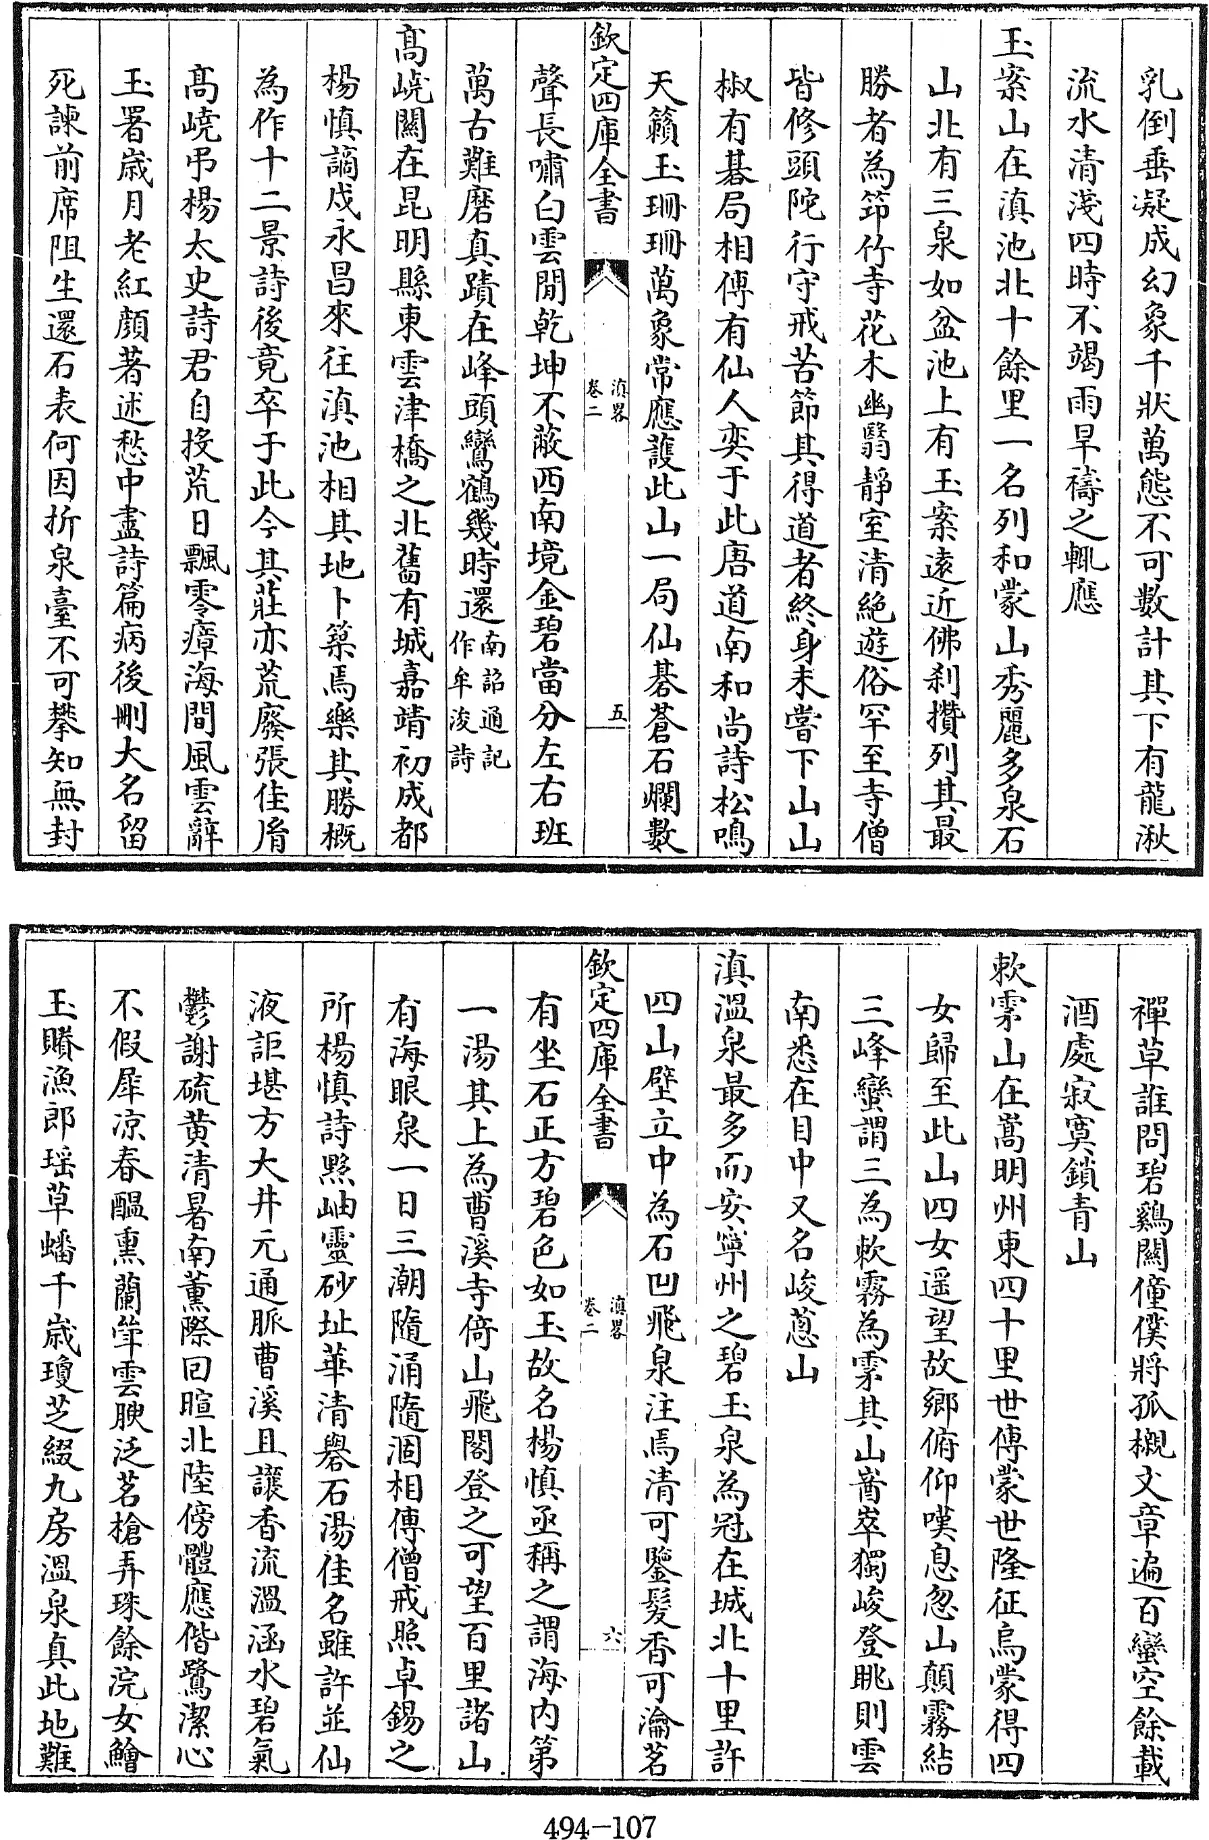 乳倒垂凝成幻象千狀萬態不可數計其下有龍湫
流水清淺四時不竭雨旱禱之輒應
玉案山在滇池北十餘里一名列和蒙山秀麗多泉石
山北有三泉如盆池上有玉案遠近佛刹攢列其最
勝者為筇竹寺花木幽翳靜室清絕遊俗罕至寺僧
皆修頭陀行守戒苦節其得道者終身未嘗下山山
椒有碁局相傳有仙人奕于此唐道南和尚詩松鳴
天籟玉珊珊萬象常應護此山一局仙碁蒼石爛數
欽定四庫全書
滇畧
卷二
五
聲長嘯白雲閒乾坤不蔽西南境金碧當分左右班
萬古難磨真蹟在峰頭鸞鶴幾時還南詔通記
作牟浚詩
髙嶢關在昆明縣東雲津橋之北舊有城嘉靖初成都
楊慎謫戍永昌來往滇池相其地卜築焉樂其勝概
為作十二景詩後竟卒于此今其莊亦荒廢張佳胤
髙嶢弔楊太史詩君自投荒日飄零瘴海間風雲辭
玉署嵗月老紅顔著述愁中盡詩篇病後刪大名留
死諫前席阻生還石表何因折泉臺不可攀知無封
禪草誰問碧鷄關僮僕將孤櫬文章遍百蠻空餘載
酒處寂寞鎖青山
欶雺山在嵩明州東四十里世傳蒙世隆征烏蒙得四
女歸至此山四女遥望故鄉俯仰嘆息忽山顛霧結
三峰蠻謂三為欶霧為雺其山崷崒獨峻登眺則雲
南悉在目中又名峻葱山
滇溫泉最多而安寧州之碧玉泉為冠在城北十里許
四山壁立中為石凹飛泉注焉清可鑒髮香可瀹茗
欽定四庫全書
滇畧
卷二
六
有坐石正方碧色如玉故名楊慎亟稱之謂海内第
一湯其上為曹溪寺倚山飛閣登之可望百里諸山
有海眼泉一日三潮隨涌隨涸相傳僧戒照卓錫之
所楊慎詩黟岫靈砂址華清礜石湯佳名雖許並仙
液詎堪方大井元通脈曹溪且讓香流溫涵水碧氣
鬱謝硫黄清暑南薰際回暄北陸傍體應偕鷺潔心
不假犀凉春醖熏蘭筆雲腴泛茗槍弄珠餘浣女鱠
玉賸漁郎瑶草蟠千嵗瓊芝綴九房溫泉真此地難
494-107